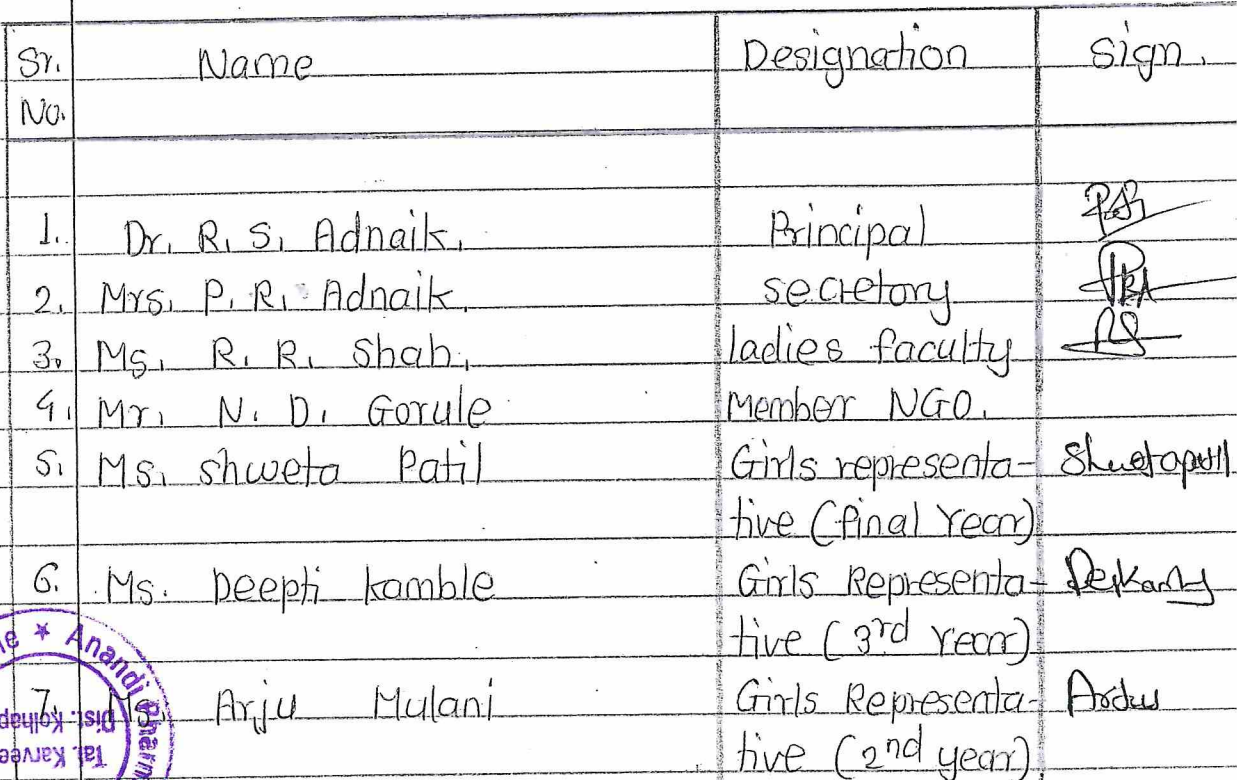 Sr. Name Designation Sign.
No.
1. Dr. R. S. Adnaik. Principal
2. Mrs. P. R. Adnaik. secretory
3. Ms. R. R. Shah. ladies faculty
4. Mr. N. D. Gorule Member NGO.
5. Ms. shweta Patil Girls representa- Shwetapatil
tive (final Year)
6. Ms. Deepti kamble Girls Representa-
tive (3rd Year)
7. Ms. Arju Mulani Girls Representa-
tive (2nd year)
Anandi Pharm
Dist. Kolhap
Tal. Karvee